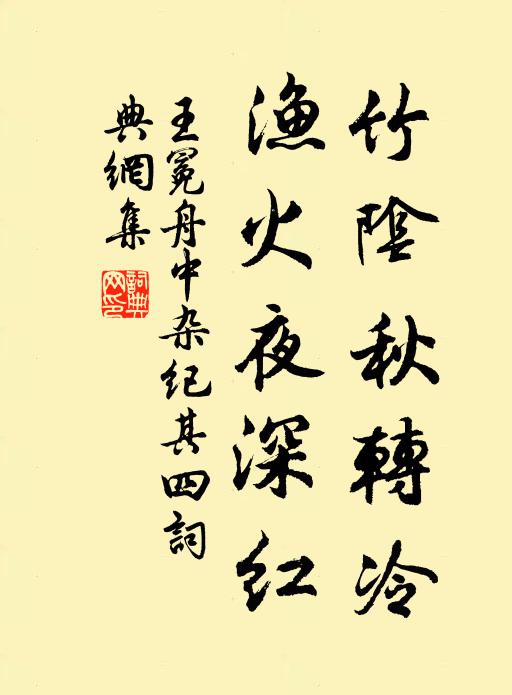 竹陰秋轉冷
漁火夜深紅
王冕舟中杂纪其四詞
典網集
詞典网印